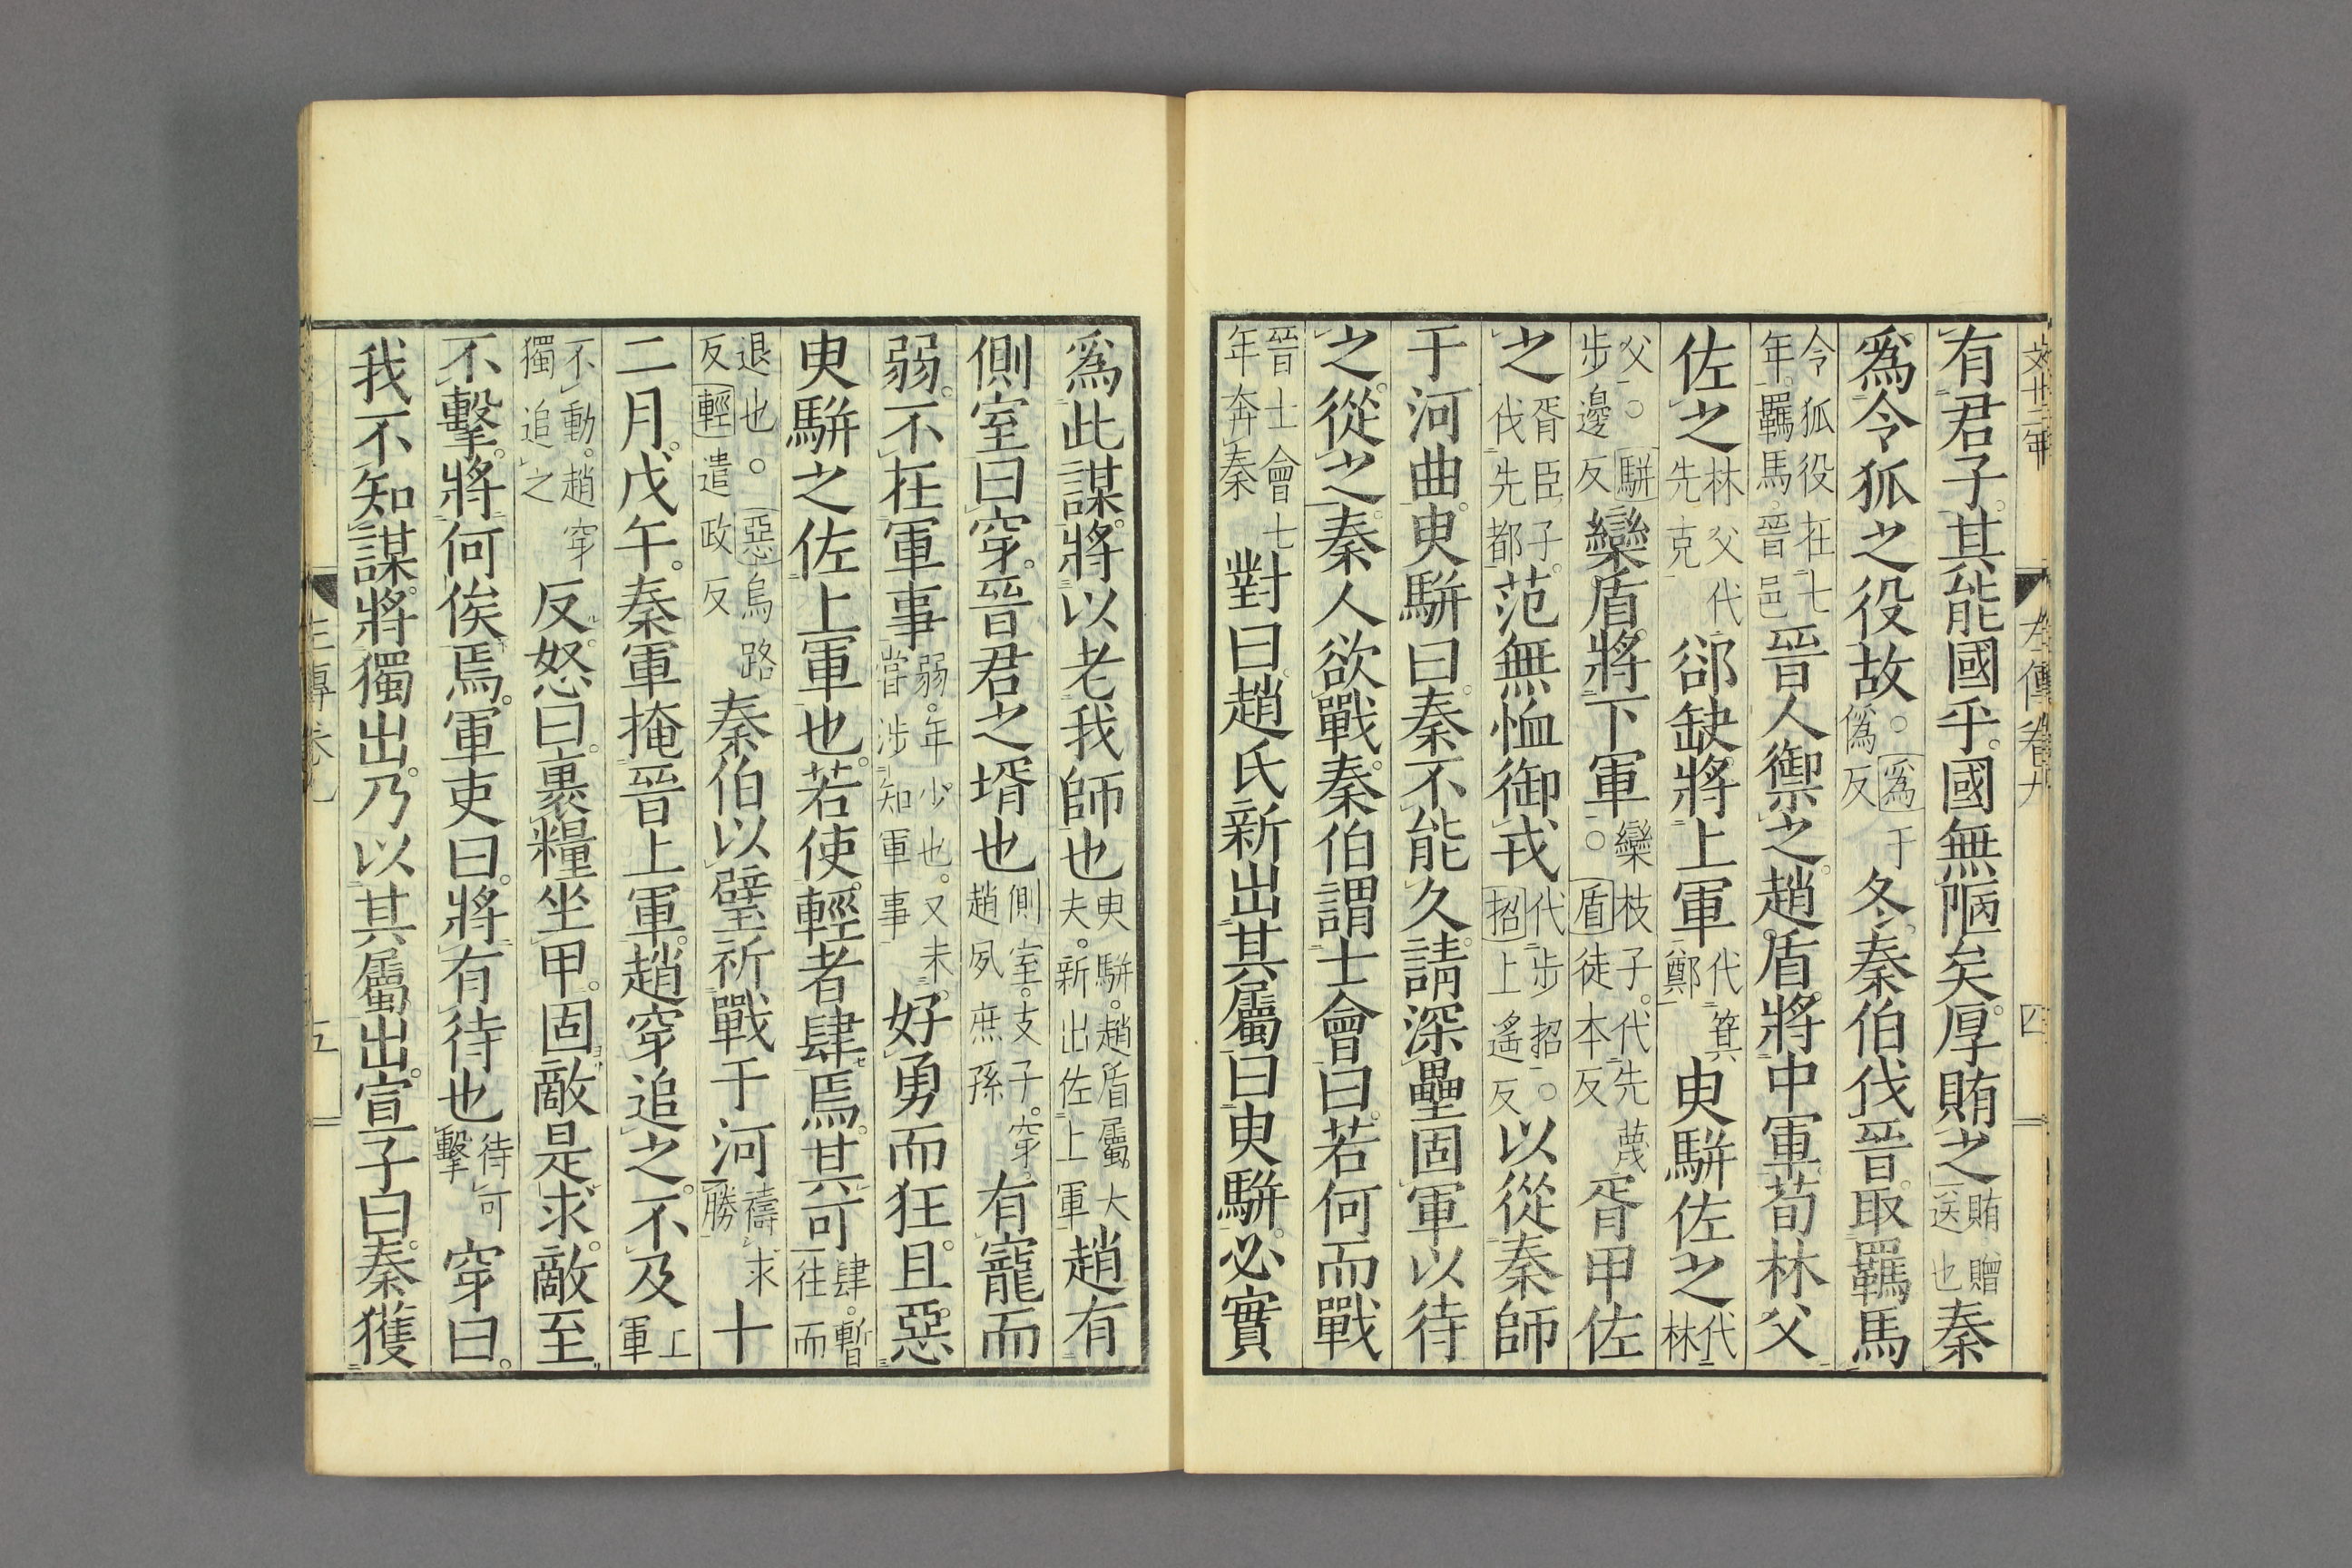 文十二年 左傳卷九 四
有君子。其能國乎。國無陋矣。厚賄之賄贈送也秦
爲令狐之役故。○爲于僞反冬。秦伯伐晉。取羈馬
令狐役在七年。羈馬。晉邑晉人禦之。趙盾。將中軍。荀林父
佐之林父代先克郤缺。將上軍代箕鄭臾駢佐之代林
父。○駢步邊反欒盾。將下軍。欒枝子。代先蔑○盾徒本反胥甲佐
之胥臣子。伐先都范無恤御戎代步招。○招上遙反以從秦師
于河曲。臾駢曰。秦不能久。請深壘固軍以待
之。從之。秦人欲戰。秦伯謂士會曰。若何而戰
晉士會七年奔秦對曰。趙氏新出其屬曰臾駢。必實
爲此謀。將以老我師也臾駢。趙盾屬。大夫。新出佐上軍趙有
側室曰穿。晉君之壻也側室。支子。穿。趙夙庶孫有寵而
弱。不在軍事弱。年少也。又未嘗涉知軍事好勇而狂。且惡
臾駢之佐上軍也。若使輕者肆焉。其可肆。暫往而
退也。○惡烏路反輕遣政反秦伯以璧祈戰于河禱求勝十
二月。戊午。秦軍掩晉上軍。趙穿追之。不及上軍
不動。趙穿獨追之反。怒曰。裹糧坐甲。固敵是求。敵至
不擊。將何俟焉。軍吏曰。將有待也待可擊穿曰。
我不知謀。將獨出。乃以其屬出。宣子曰。秦獲
五